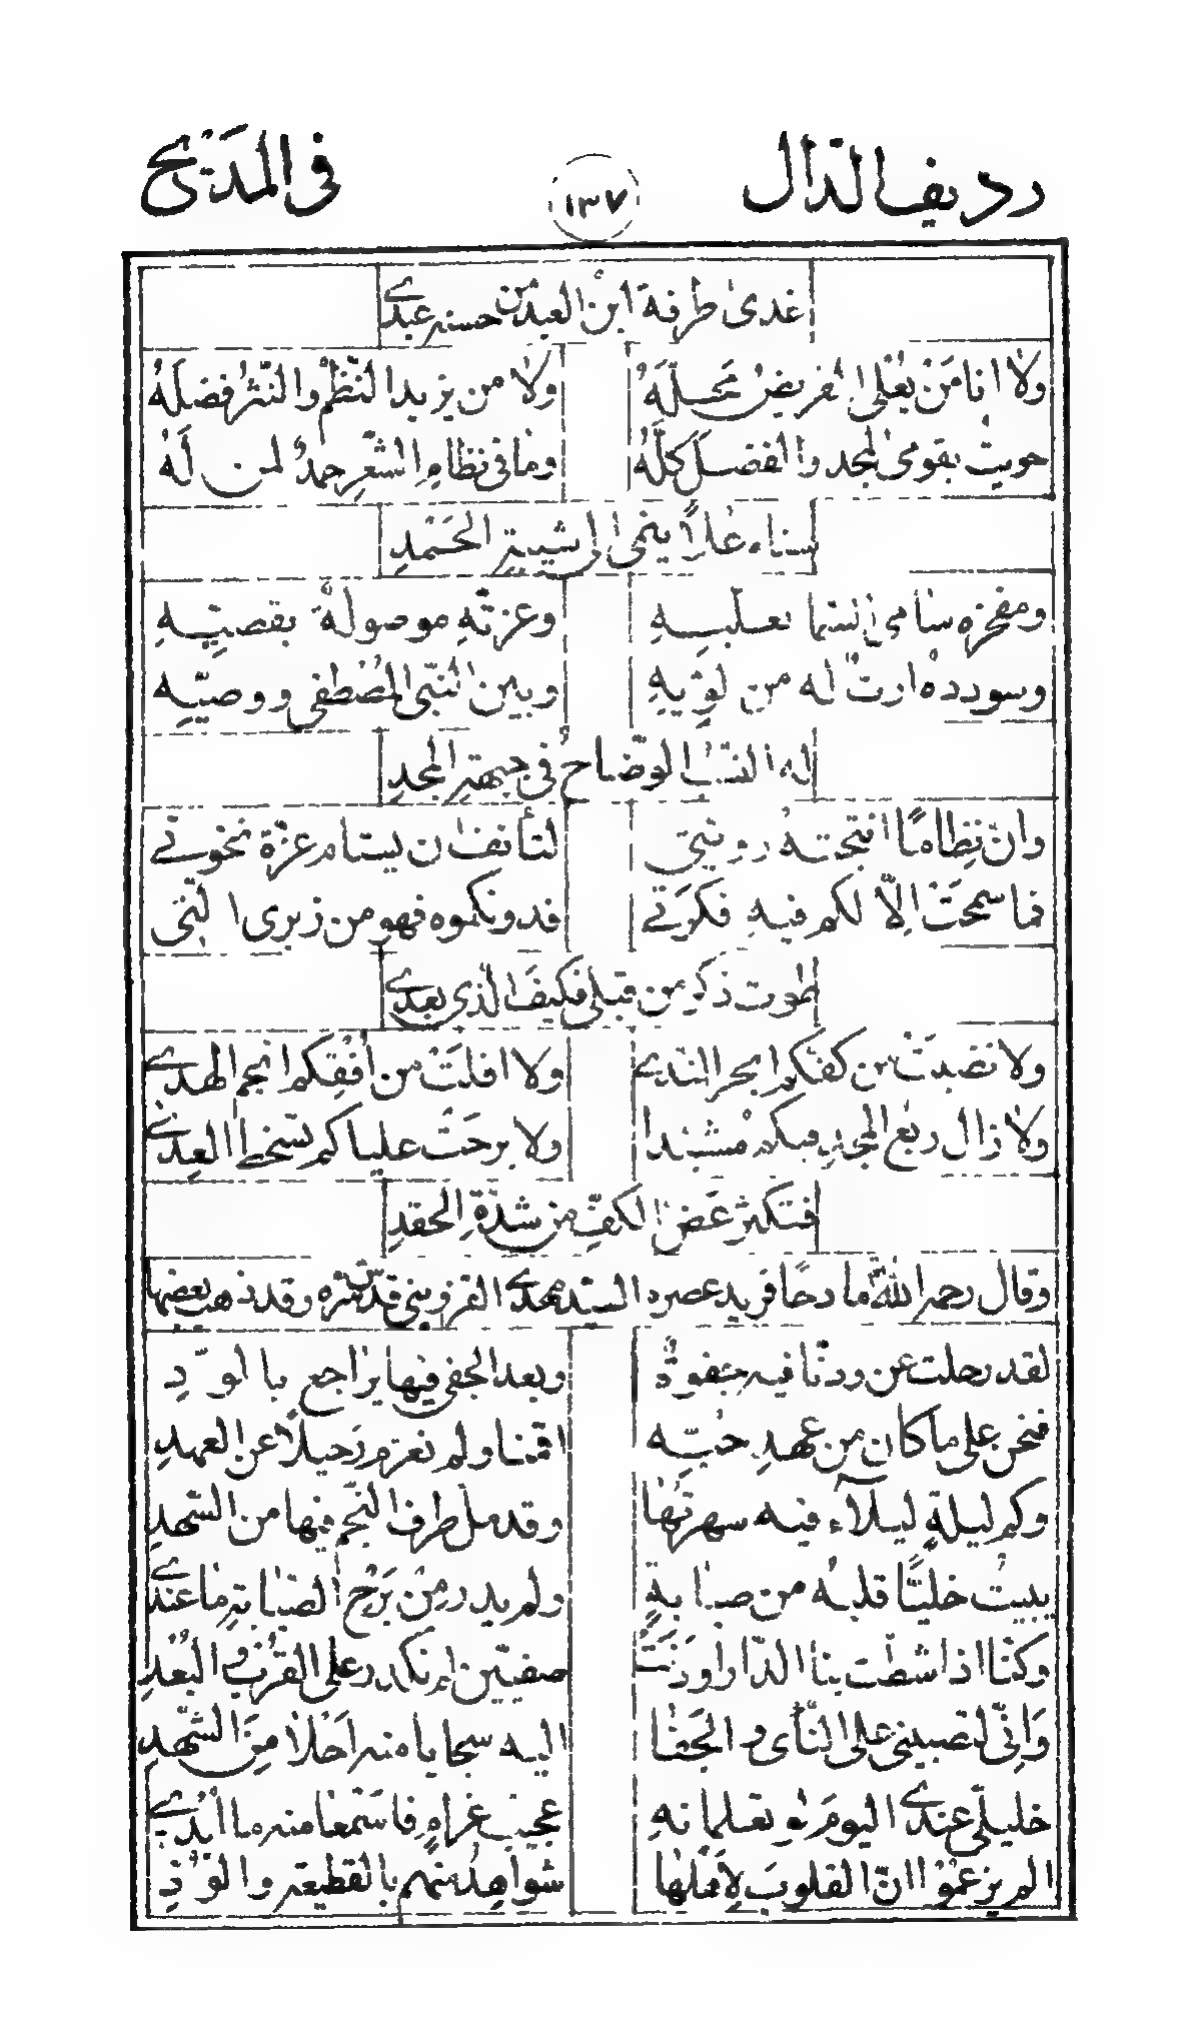 رديف الدال ١٣٧ فى المديح
غدى طرفة ابن العبد من حسنه عبدے
ولا انا مَنْ يُعْلى القريضُ مَحلّهُ ولا من يزيد النّظمُ والنّثرُ فضلَهُ
حويتُ بقومى المجد والفضل كلّهُ وما فى نظام الشّعر حمدٌ لمن لَهُ
سناء علاً ينمى الى شيبة الحَمْدِ
ومفخره سامى السّما بعليهِ وعزّته موصولةٌ بقصيّهِ
وسودده ارثٌ له من لويّهِ وبين النّبى المُصْطفى ووصيّهِ
له النّسب الوضّاحُ فى جبهة المجدِ
وانّ نظاماً انتجتهُ رويّتى لتأنف ان يستام عزّة نخوتى
فما سمحَتْ الّا لكم فيهِ فكرتى فدونكموه فهو من زبرى الّتى
طوت ذكر من قبلى فكيفَ الّذى بعدے
ولا نضبَتْ من كفّكم ابحر النّدے ولا افلَتْ من اُفْقِكم انجم الهدے
ولا زال ربع المجدِ فيكم مشيّدا ولا برحَتْ علياكم تسخط العِدے
فتكثر عَضّ الكفِّ من شدّةِ الحقدِ
وقال رحمه اللهُ مادحاً فريد عصره السّيد مهدے القزوينى قدّس سرّه وقد ذهب بعضها
لقد رحلت عن ودّنا فيه جفوةٌ وبعد الجفى فيها يراجع بالودِّ
فنحن على ما كان من عهدِ حبّه اقمنا ولم نعزم رَحيلاً عن العهدِ
وكم ليلةٍ ليلآء فيه سهرتُها وقد ملّ طرف النّجم فيها من السّهدِ
يبيتُ خليّاً قلبه من صبابةٍ ولم يدر مِنْ بَرْح الصّبابة ما عندے
وكنّا اذا شطّت بنا الدّار او دَنَتْ صفيّين لم نكدر على القُرْب والبُعْدِ
وَانّى لتصبينى على النّأى والجَفا اليه سجايا منه اَحْلا مِنَ الشّهدِ
خليلّى عندے اليومَ لو تعلمانهِ عجيبُ غرامٍ فاسْتَمعا منه ما اُبْدے
الم يزعمُوا انّ القلوبَ لأهْلها شواهدُ منهم بالقطيعة والودِّ